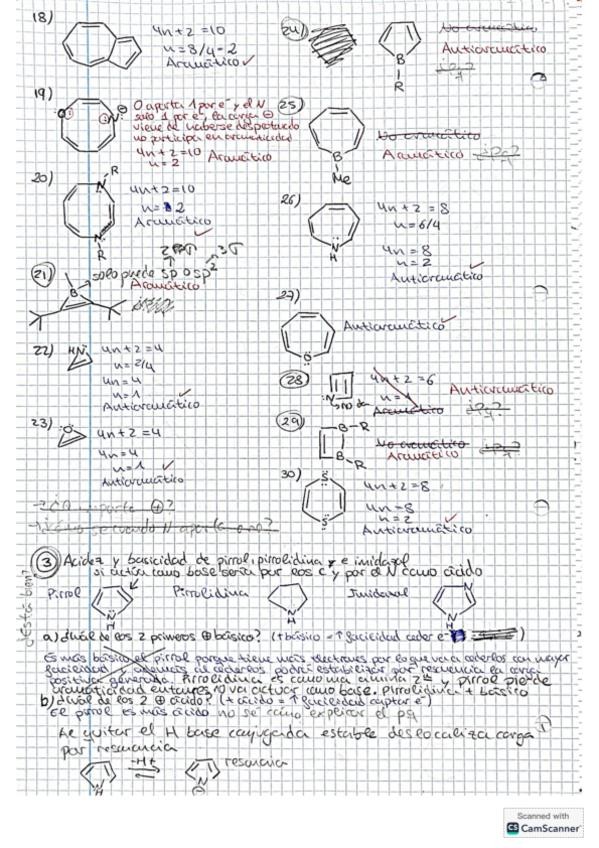 18)
4n+2=10
n=8/4=2
Aromático ✓
19)
O aporta 1 par e⁻ y el N
solo 1 par e⁻, la carga ⊖
viene de haberse desprotonado
no participa en aromaticidad
4n+2=10 Aromático
n=2
20)
N-R
4n+2=10
n=2
Aromático
✓
N
R
21)
B
solo puede sp o sp²
Aromático
22)
HN
4n+2=4
n=2/4
4n=4
n=1
Antiaromático ✓
23)
O
4n+2=4
4n=4
n=1 ✓
Antiaromático
24)
B
R
No aromático
Antiaromático
¿Pq?
25)
B
Me
No aromático
Aromático ¿Pq?
26)
N
H
4n+2=8
n=6/4
4n=8
n=2
Antiaromático
27)
O
Antiaromático ✓
28)
N
no da
4n+2=6
n=1
Aromático
Antiaromático
¿Pq?
29)
B-R
B-R
No aromático
Aromático
¿Pq?
30)
S
S
4n+2=8
4n=8
n=2 ✓
Antiaromático
¿Está bien?
3) Acidez y basicidad de pirrol, pirrolidina y e imidazol
si actúa como base sería por los C y por el N como ácido
Pirrol
N
H
Pirrolidina
N
H
Imidazol
N
N
H
a) ¿Cuál de los 2 primeros ⊕ básico? (+básico = ↑facilidad ceder e⁻)
Es más básico el pirrol porque tiene más electrones por lo que va a cederlos con mayor
facilidad, además al cederlos podrá estabilizar por resonancia la carga
positiva generada. Pirrolidina es como una amina 2ª y pirrol pierde
aromaticidad entonces no va actuar como base. Pirrolidina + básico
b) ¿Cuál de los 2 ⊕ ácido? (+ácido = ↑facilidad captar e⁻)
El pirrol es más ácido no sé cómo explicar el pq
Al quitar el H base conjugada estable deslocaliza carga
por resonancia
N
H
-H⁺
N
⊖
resonancia
Scanned with
CS CamScanner